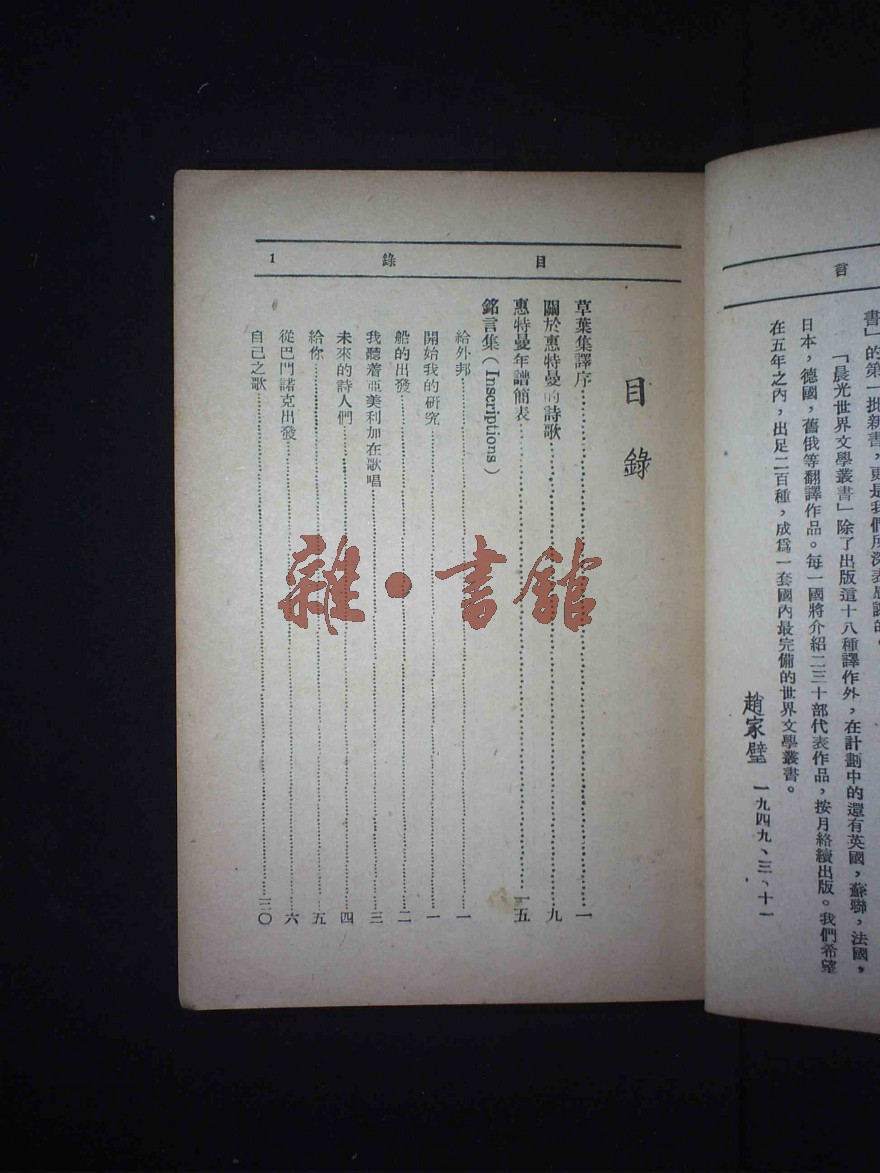 言
書」的第一批新書，更是我們所深表感謝的。
「晨光世界文學叢書」除了出版這十八種譯作外，在計劃中的還有英國，蘇聯，法國，
日本，德國，舊俄等翻譯作品。每一國將介紹二三十部代表作品，按月絡續出版。我們希望
在五年之內，出足二百種，成爲一套國內最完備的世界文學叢書。
趙家璧 一九四九、三、十一
目錄 1
目錄
草葉集譯序 一
關於惠特曼的詩歌 九
惠特曼年譜簡表 一五
銘言集（Inscriptions）
給外邦 一
開始我的研究 一
船的出發 二
我聽着亞美利加在歌唱 三
未來的詩人們 四
給你 五
從巴門諾克出發 六
自己之歌 三〇
雜·書館